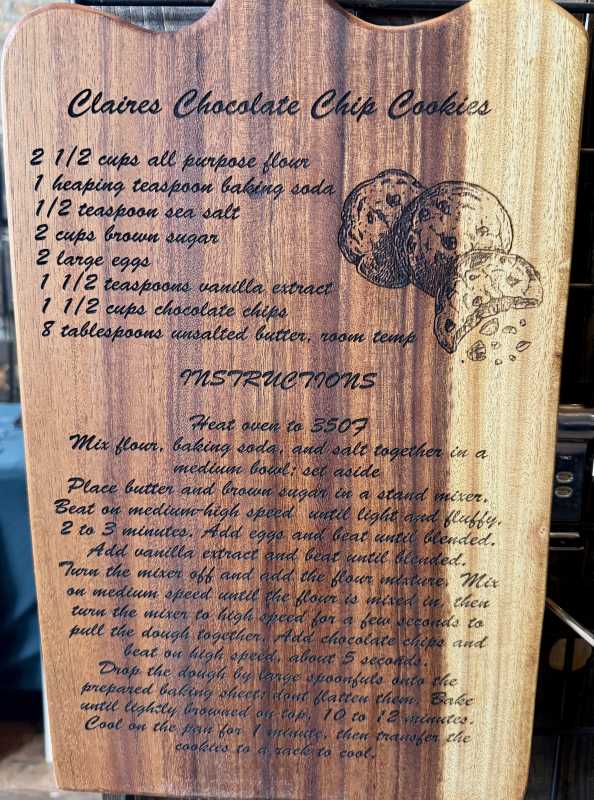 Claires Chocolate Chip Cookies
2 1/2 cups all purpose flour
1 heaping teaspoon baking soda
1/2 teaspoon sea salt
2 cups brown sugar
2 large eggs
1 1/2 teaspoons vanilla extract
1 1/2 cups chocolate chips
8 tablespoons unsalted butter, room temp
INSTRUCTIONS
Heat oven to 350F
Mix flour, baking soda, and salt together in a
medium bowl; set aside
Place butter and brown sugar in a stand mixer.
Beat on medium-high speed until light and fluffy,
2 to 3 minutes. Add eggs and beat until blended.
Add vanilla extract and beat until blended.
Turn the mixer off and add the flour mixture. Mix
on medium speed until the flour is mixed in, then
turn the mixer to high speed for a few seconds to
pull the dough together. Add chocolate chips and
beat on high speed, about 5 seconds.
Drop the dough by large spoonfuls onto the
prepared baking sheet; dont flatten them. Bake
until lightly browned on top, 10 to 12 minutes.
Cool on the pan for 1 minute, then transfer the
cookies to a rack to cool.